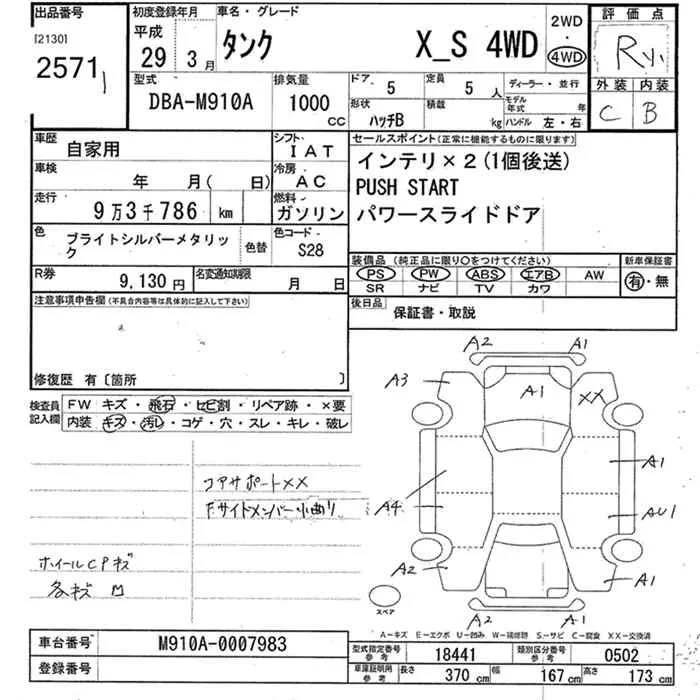 出品番号
[2130]
2571
初度登録年月
平成
29年 3月
車名・グレード
タンク X_S 4WD
2WD
・
4WD
評価点
R
外装 内装
C B
型式
DBA-M910A
排気量
1000
CC
ドア 5
定員 5人
ディーラー・並行
形状
ハッチB
積載 kg
モデル年式 年
ハンドル 左・右
車歴
自家用
シフト
IAT
車検
年 月( 日)
冷房
AC
走行
9万3千786 km
燃料
ガソリン
色
ブライトシルバーメタリック
色替
色コード
S28
R券
9,130円
名変通知期限
月 日
セールスポイント(正常に機能するものに限ります)
インテリ×2(1個後送)
PUSH START
パワースライドドア
装備品 (純正品に限り○をつけてください)
PS PW ABS エアB AW
SR ナビ TV カワ
新車保証書
有・無
後日品
保証書・取説
注意事項申告欄(不具合内容等は具体的に記入して下さい)
修復歴 有〔箇所 〕
検査員記入欄
FW キズ・飛石・ヒビ割・リペア跡・×要
内装 キズ・汚レ・コゲ・穴・スレ・キレ・破レ
コアサポートXX
Fサイドメンバー小曲り
ホイールCPキズ
各キズ凹
A2 A1
A3
A1
XX
A1
A4
AU1
A2
A1
スペア
A2 A1
A-キズ E-エクボ U-凹み W-補修跡 S-サビ C-腐食 XX-交換済
車台番号 M910A-0007983
登録番号
型式指定番号
参考
18441
類別区分番号
参考
0502
車庫証明用
参考
長さ 370 cm
幅 167 cm
高さ 173 cm